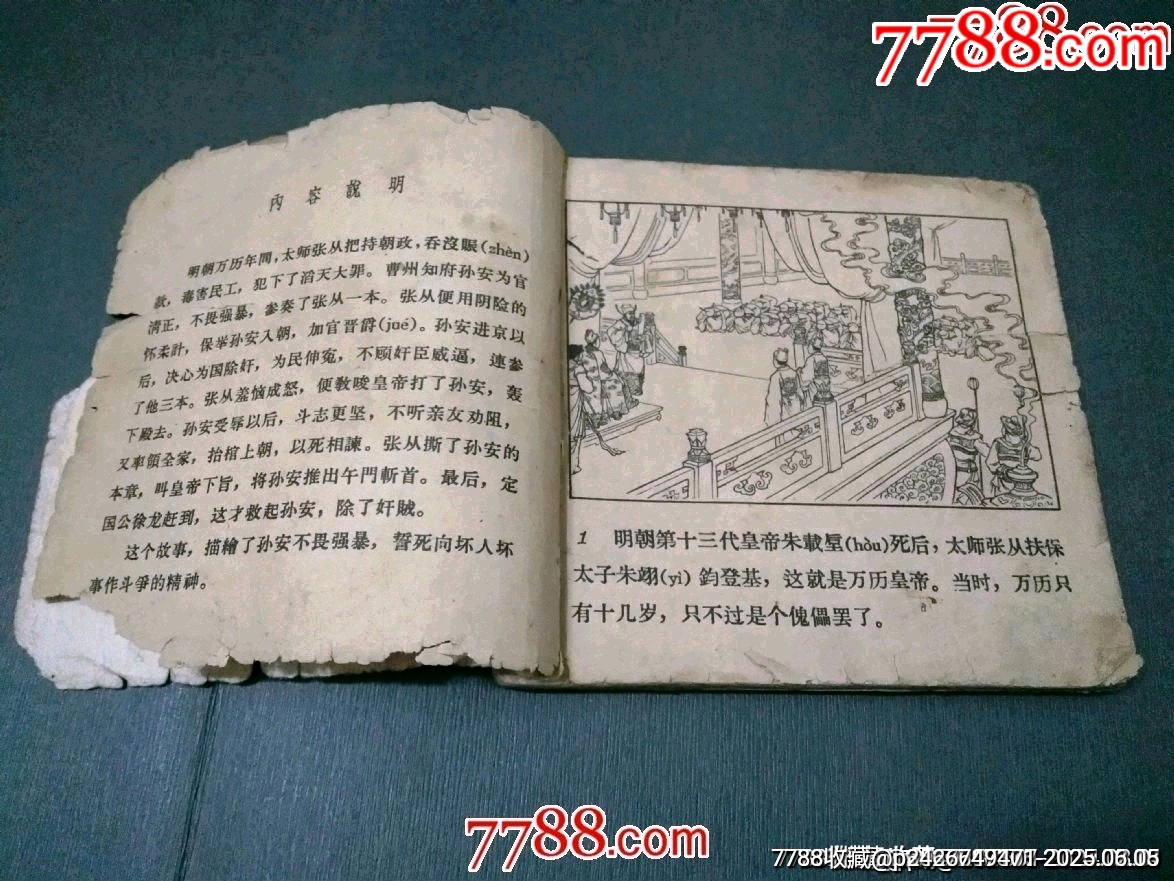 7788.com
內容說明
明朝万历年間，太师张从把持朝政，吞沒賑(zhèn)
款，毒害民工，犯下了滔天大罪。曹州知府孙安为官
清正，不畏强暴，参奏了张从一本。张从便用阴险的
怀柔計，保举孙安入朝，加官晋爵(jué)。孙安进京以
后，决心为国除奸，为民伸寃，不顾奸臣威逼，連参
了他三本。张从羞恼成怒，便教唆皇帝打了孙安，轰
下殿去。孙安受辱以后，斗志更坚，不听亲友劝阻，
又率領全家，抬棺上朝，以死相諫。张从撕了孙安的
本章，叫皇帝下旨，将孙安推出午門斬首。最后，定
国公徐龙赶到，这才救起孙安，除了奸賊。
这个故事，描繪了孙安不畏强暴，誓死向坏人坏
事作斗爭的精神。
1 明朝第十三代皇帝朱載垕(hòu)死后，太师张从扶保
太子朱翊(yì)鈞登基，这就是万历皇帝。当时，万历只
有十几岁，只不过是个傀儡罢了。
7788.com
7788收藏@p2426649471-2025.06.05